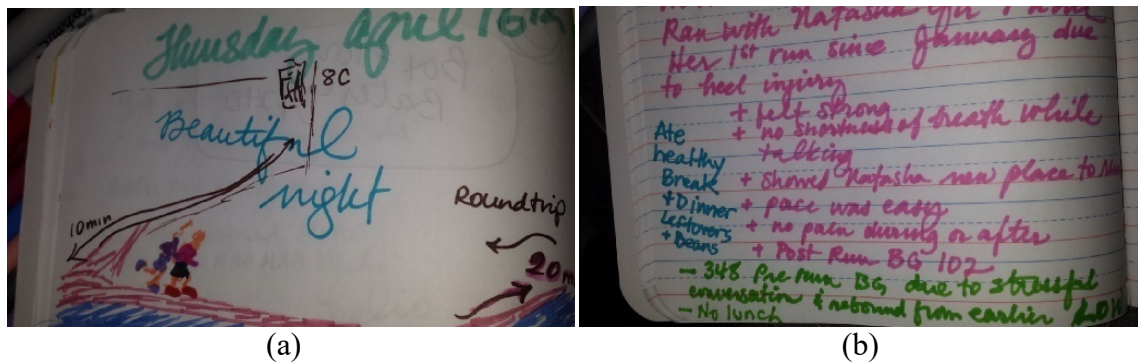 Thursday April 16th
8C
Beautiful
night
10min
Roundtrip
20
(a)
Ran with Natasha for 1 hour
Her 1st run since January due
to heel injury
+ felt strong
+ no shortness of breath while
talking
+ showed Natasha new place to
+ pace was easy
+ no pain during or after
+ Post Run BG 102
Ate
healthy
Break
+ Dinner
Leftovers
+ Beans
→ 348 Pre run BG due to stressful
conversation & rebound from earlier LOW
- No lunch
(b)